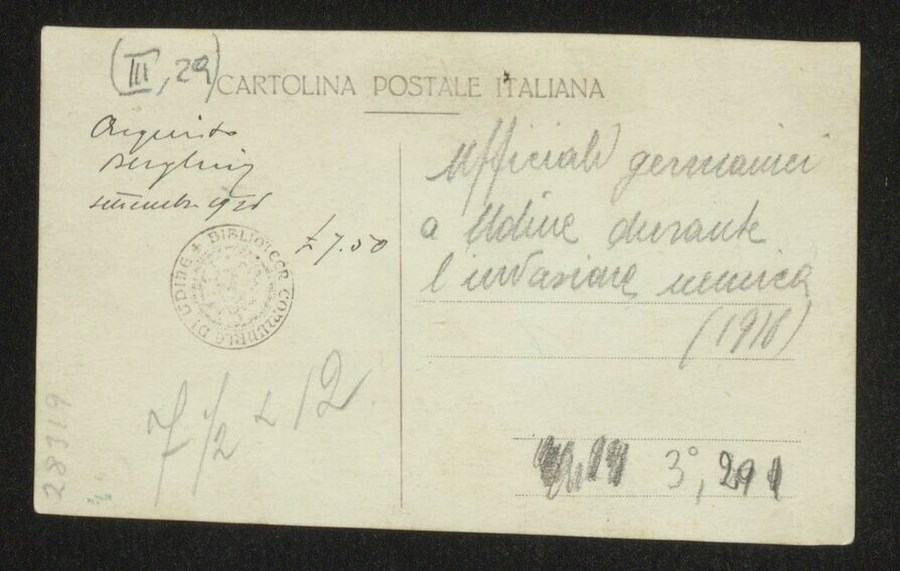 (III, 29)
CARTOLINA POSTALE ITALIANA
Acquisto
settembre 1926
£ 7.50
BIBLIOTECA COMUNALE DI UDINE
7 1/2 × 12
28319
Ufficiali germanici
a Udine durante
l'invasione nemica
(1918)
3°, 29